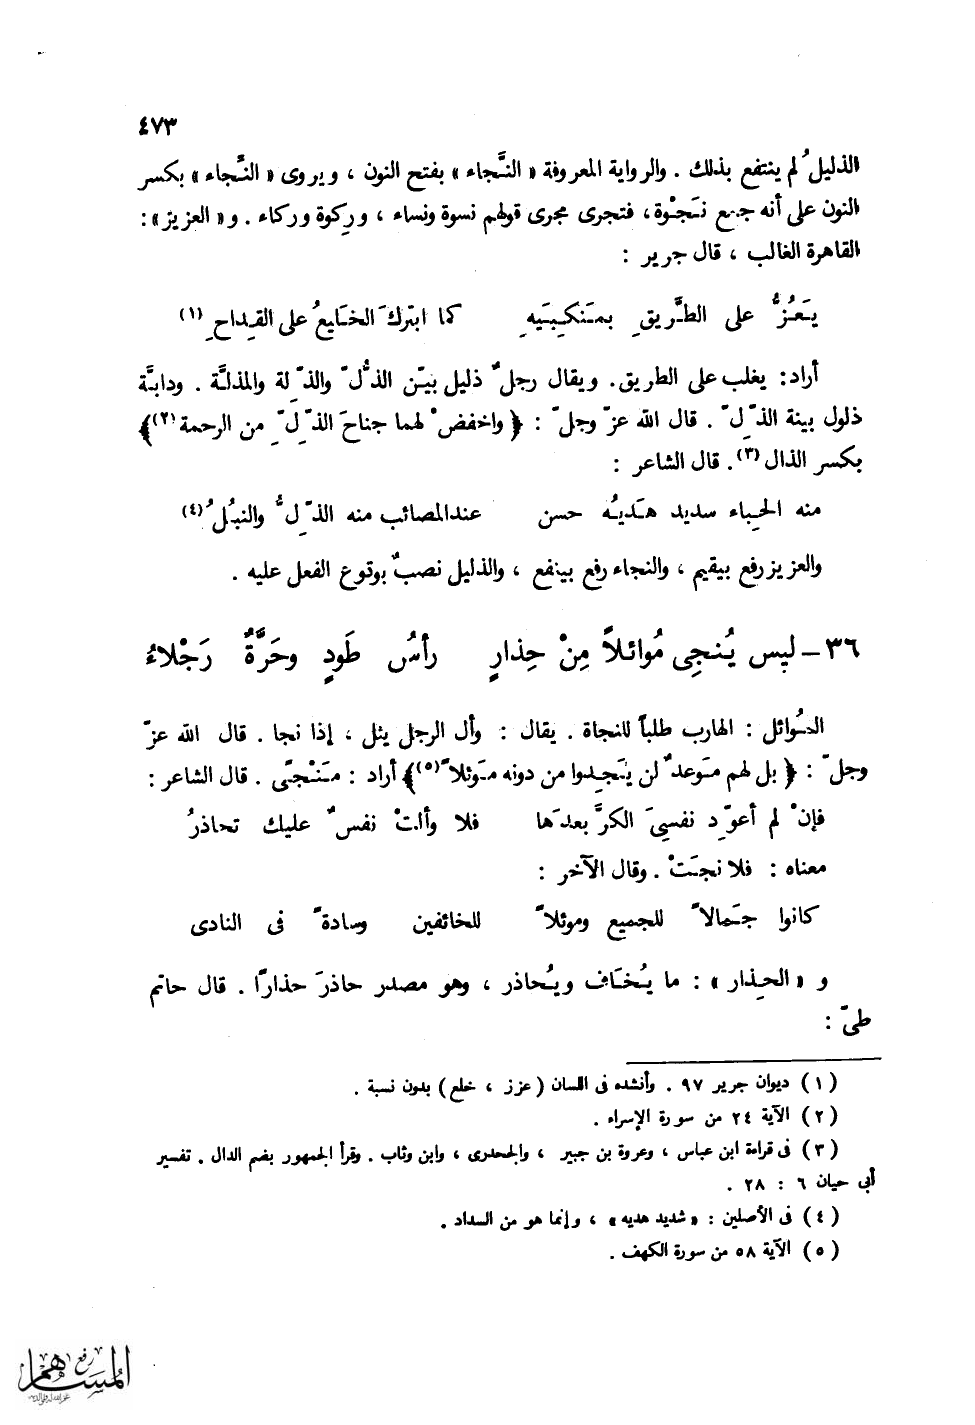 ٤٧٣
الذليلُ لم ينتفع بذلك . والرواية المعروفة « النَّجاء » بفتح النون ، ويروى « النَّجاء » بكسر
النون على أنه جمع نَجْوة، فتجرى مجرى قولهم نسوة ونساء ، ورِكوة وركاء . و« العزيز » :
القاهرة الغالب ، قال جرير :
يَعُزُّ على الطَّريقِ بمَنكِبَيه كما ابتركَ الخَليعُ على القِداحِ (١)
أراد: يغلب على الطريق. ويقال رجلٌ ذليل بيّن الذُّلّ والذِّلة والمذلَّة . ودابَّة
ذلول بينة الذِّلّ . قال الله عزّ وجلّ : ﴿ واخفضْ لهما جناحَ الذِّلِّ من الرحمة (٢)﴾
بكسر الذال (٣). قال الشاعر :
منه الحِباء سديد هَديُه حسن عندالمصائب منه الذِّلُّ والنبُلُ (٤)
والعزيز رفع بيقيم ، والنجاء رفع بينفع ، والذليل نصبٌ بوتوع الفعل عليه .
٣٦ – ليس يُنجِى مُوائلاً مِنْ حِذارٍ رأسُ طَودٍ وحَرَّةٌ رَجْلاءُ
المُوائل : الهارب طلباً للنجاة . يقال : وأل الرجل يئل ، إذا نجا . قال الله عزّ
وجلّ : ﴿ بل لهم مَوعدٌ لن يَجِدوا من دونه مَوئلاً (٥)﴾ أراد : مَنْجًى . قال الشاعر :
فإنْ لم أعوِّد نفسِىَ الكرَّ بعدَها فلا وألتْ نفسٌ عليك تحاذرُ
معناه : فلا نجتَْ . وقال الآخر :
كانوا جَمالاً للجميع وموئلاً للخائفين وسادةً فى النادى
و « الحِذار » : ما يُخاف ويُحاذر ، وهو مصدر حاذرَ حذارًا . قال حاتم
طىّ :
(١) ديوان جرير ٩٧ . وأنشده فى اللسان ( عزز ، خلع ) بدون نسبة .
(٢) الآية ٢٤ من سورة الإسراء .
(٣) فى قراءة ابن عباس ، وعروة بن جبير ، والجحدرى ، وابن وثاب . وقرأ الجمهور بضم الدال . تفسير
أبى حيان ٦ : ٢٨ .
(٤) فى الأصلين : « شديد هديه » ، وإنما هو من السداد .
(٥) الآية ٥٨ من سورة الكهف .